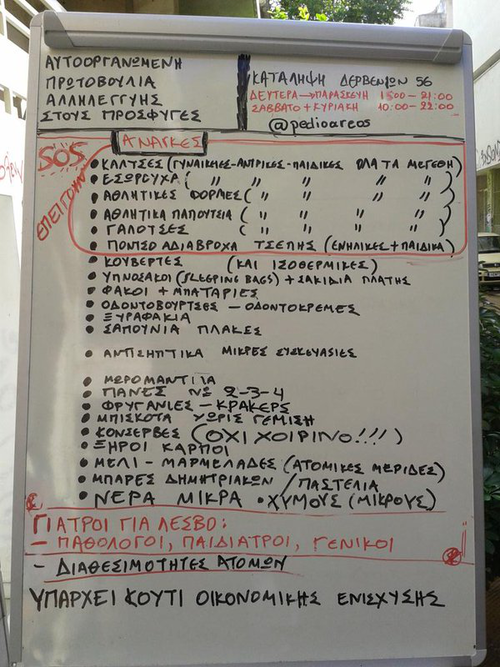 ΑΥΤΟΟΡΓΑΝΩΜΕΝΗ
ΠΡΩΤΟΒΟΥΛΙΑ
ΑΛΛΗΛΕΓΓΥΗΣ
ΣΤΟΥΣ ΠΡΟΣΦΥΓΕΣ
ΚΑΤΑΛΗΨΗ ΔΕΡΒΕΝΙΩΝ 56
ΔΕΥΤΕΡΑ → ΠΑΡΑΣΚΕΥΗ 18:00 - 21:00
ΣΑΒΒΑΤΟ + ΚΥΡΙΑΚΗ 10:00 - 22:00
@pedioareos
ΑΝΑΓΚΕΣ
SOS
ΕΠΕΙΓΟΥΝ
• ΚΑΛΤΣΕΣ (ΓΥΝΑΙΚΙΕΣ - ΑΝΤΡΙΚΕΣ - ΠΑΙΔΙΚΕΣ ΟΛΑ ΤΑ ΜΕΓΕΘΗ)
• ΕΣΩΡΟΥΧΑ ( " " " " " )
• ΑΘΛΗΤΙΚΕΣ ΦΟΡΜΕΣ ( " " " " )
• ΑΘΛΗΤΙΚΑ ΠΑΠΟΥΤΣΙΑ ( " " " " )
• ΓΑΛΟΤΣΕΣ ( " " " " )
• ΠΟΝΤΣΟ ΑΔΙΑΒΡΟΧΑ ΤΣΕΠΗΣ (ΕΝΗΛΙΚΕΣ + ΠΑΙΔΙΚΑ)
• ΚΟΥΒΕΡΤΕΣ (ΚΑΙ ΙΣΟΘΕΡΜΙΚΕΣ)
• ΥΠΝΟΣΑΚΟΙ (SLEEPING BAGS) + ΣΑΚΙΔΙΑ ΠΛΑΤΗΣ
• ΦΑΚΟΙ + ΜΠΑΤΑΡΙΕΣ
• ΟΔΟΝΤΟΒΟΥΡΤΣΕΣ - ΟΔΟΝΤΟΚΡΕΜΕΣ
• ΞΥΡΑΦΑΚΙΑ
• ΣΑΠΟΥΝΙΑ ΠΛΑΚΕΣ
• ΑΝΤΙΣΗΠΤΙΚΑ ΜΙΚΡΕΣ ΣΥΣΚΕΥΑΣΙΕΣ
• ΜΩΡΟΜΑΝΤΙΛΑ
• ΠΑΝΕΣ Νο 2-3-4
• ΦΡΥΓΑΝΙΕΣ - ΚΡΑΚΕΡΣ
• ΜΠΙΣΚΟΤΑ ΧΩΡΙΣ ΓΕΜΙΣΗ
• ΚΟΝΣΕΡΒΕΣ (ΟΧΙ ΧΟΙΡΙΝΟ!!!)
• ΞΗΡΟΙ ΚΑΡΠΟΙ
• ΜΕΛΙ - ΜΑΡΜΕΛΑΔΕΣ (ΑΤΟΜΙΚΕΣ ΜΕΡΙΔΕΣ)
• ΜΠΑΡΕΣ ΔΗΜΗΤΡΙΑΚΩΝ / ΠΑΣΤΕΛΙΑ
• ΝΕΡΑ ΜΙΚΡΑ • ΧΥΜΟΥΣ (ΜΙΚΡΟΥΣ)
ΓΙΑΤΡΟΙ ΓΙΑ ΛΕΣΒΟ:
- ΠΑΘΟΛΟΓΟΙ, ΠΑΙΔΙΑΤΡΟΙ, ΓΕΝΙΚΟΙ
- ΔΙΑΘΕΣΙΜΟΤΗΤΕΣ ΑΤΟΜΩΝ
ΥΠΑΡΧΕΙ ΚΟΥΤΙ ΟΙΚΟΝΟΜΙΚΗΣ ΕΝΙΣΧΥΣΗΣ